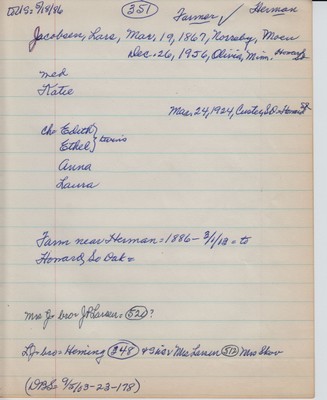 to US= 5/18/86 (351) Farmer ✓ Herman
Jacobsen, Lars, Mar. 19, 1867, Norreby, Moen
Dec. 26, 1956, Olivia, Minn. Howard
med
Katie
Mar. 24, 1924, Custer, SD=Howard SD
Ch= Edith } twins
Ethel
Anna
Laura
Farm near Herman = 1886 - 3/1/13 = to
Howard, So Dak =
Mrs J= bro= J P Larsen= (520)?
LJ= bro= Heming (348) & sis= Mrs Larsen (512) Mrs Skov
(DBS= 9/5/03-23-178)